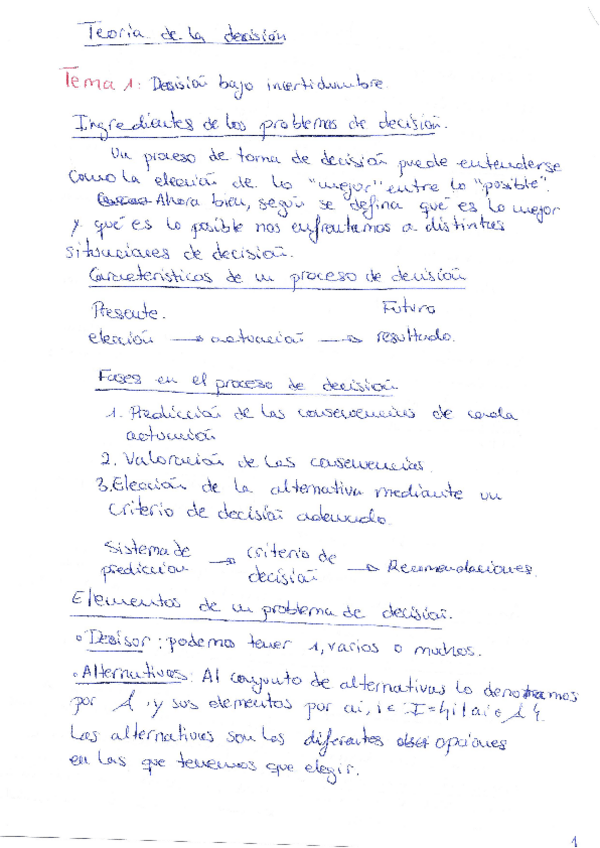 Teoría de la decisión
Tema 1: Decisión bajo incertidumbre.
Ingredientes de los problemas de decisión.
Un proceso de toma de decisión puede entenderse
como la elección de lo "mejor" entre lo "posible".
Ahora bien, según se defina qué es lo mejor
y qué es lo posible nos enfrentamos a distintas
situaciones de decisión.
Características de un proceso de decisión
Presente. Futuro
elección → actuación → resultado.
Fases en el proceso de decisión
1. Predicción de las consecuencias de cada
actuación
2. Valoración de las consecuencias.
3. Elección de la alternativa mediante un
criterio de decisión adecuado.
Sistema de → criterio de → Recomendaciones.
predicción decisión
Elementos de un problema de decisión.
• Decisor: podemos tener 1, varios o muchos.
• Alternativas: Al conjunto de alternativas lo denotamos
por A, y sus elementos por ai, i ∈ I = {i / ai ∈ A}.
Las alternativas son las diferentes opciones
en las que tenemos que elegir.
1